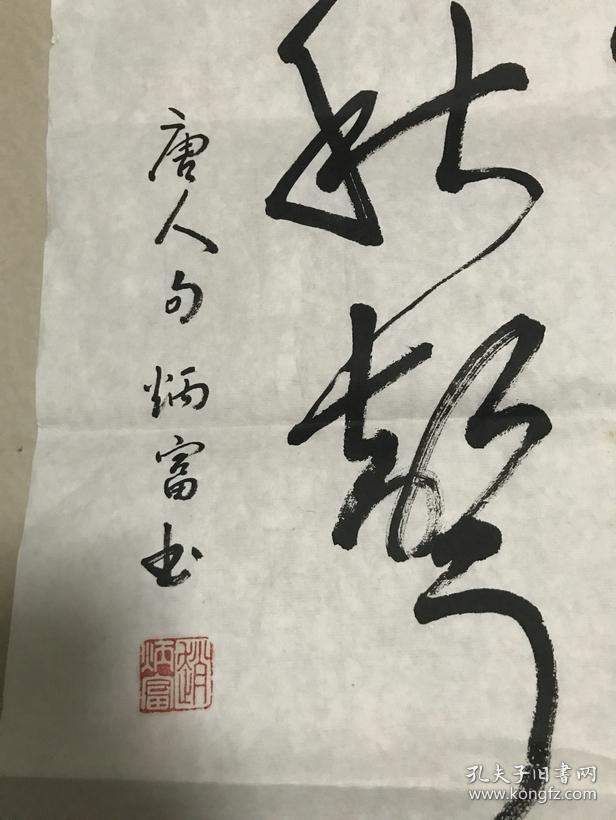 秋聲
唐人句 炳富书
趙炳富
孔夫子旧书网
www.kongfz.com